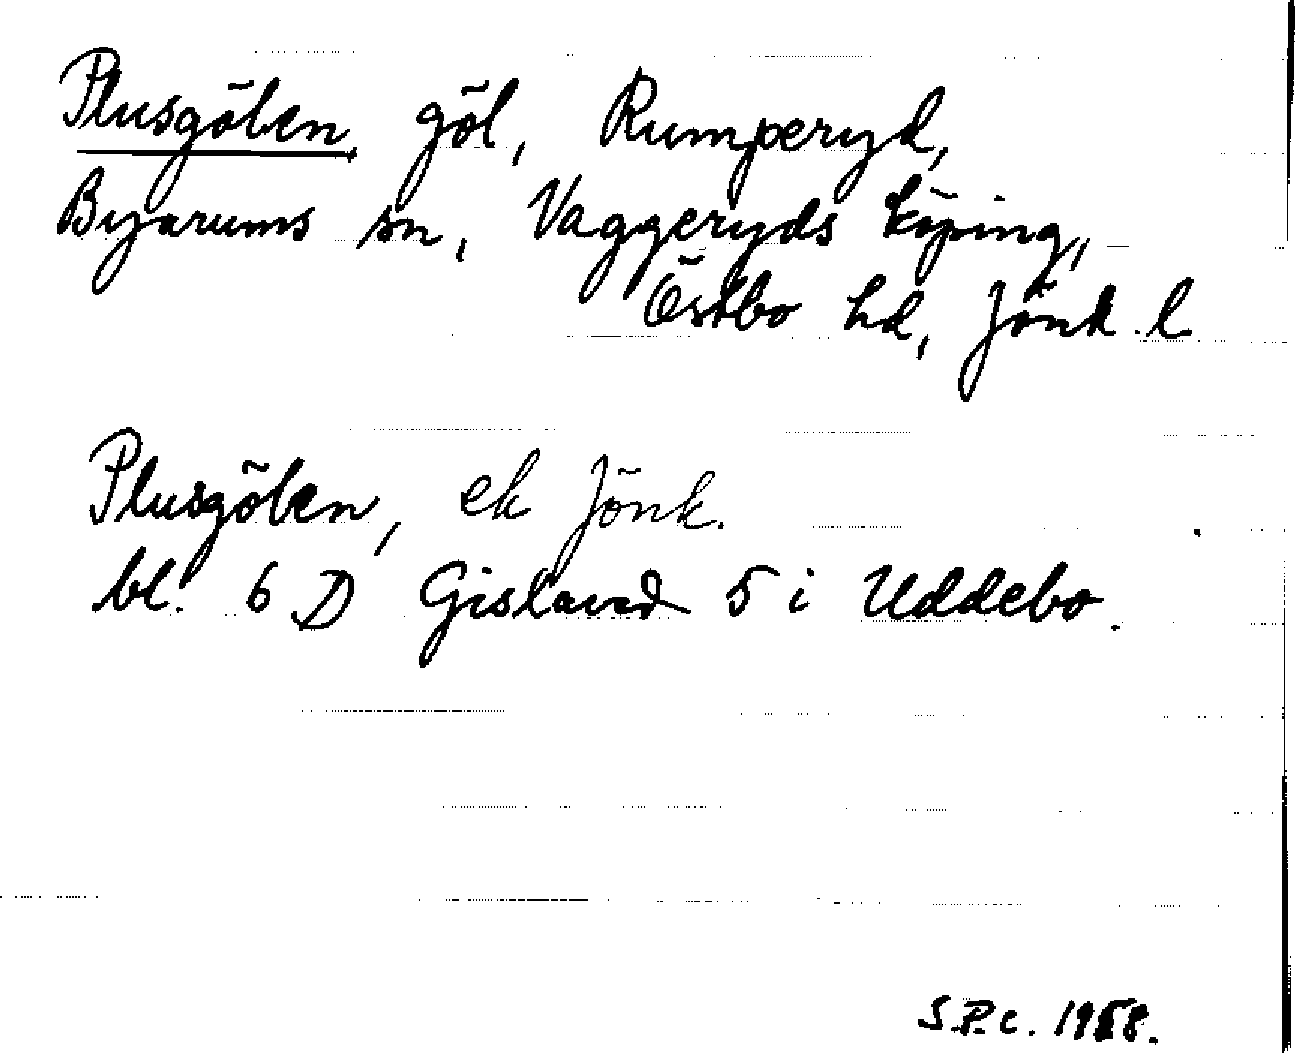 Plusgölen, göl, Rumperyd,
Byarums sn, Vaggeryds köping,
Östbo hd, Jönk. l
Plusgölen, ek Jönk.
bl. 6 D Gislaved 5 i Uddebo.
S.P.c.